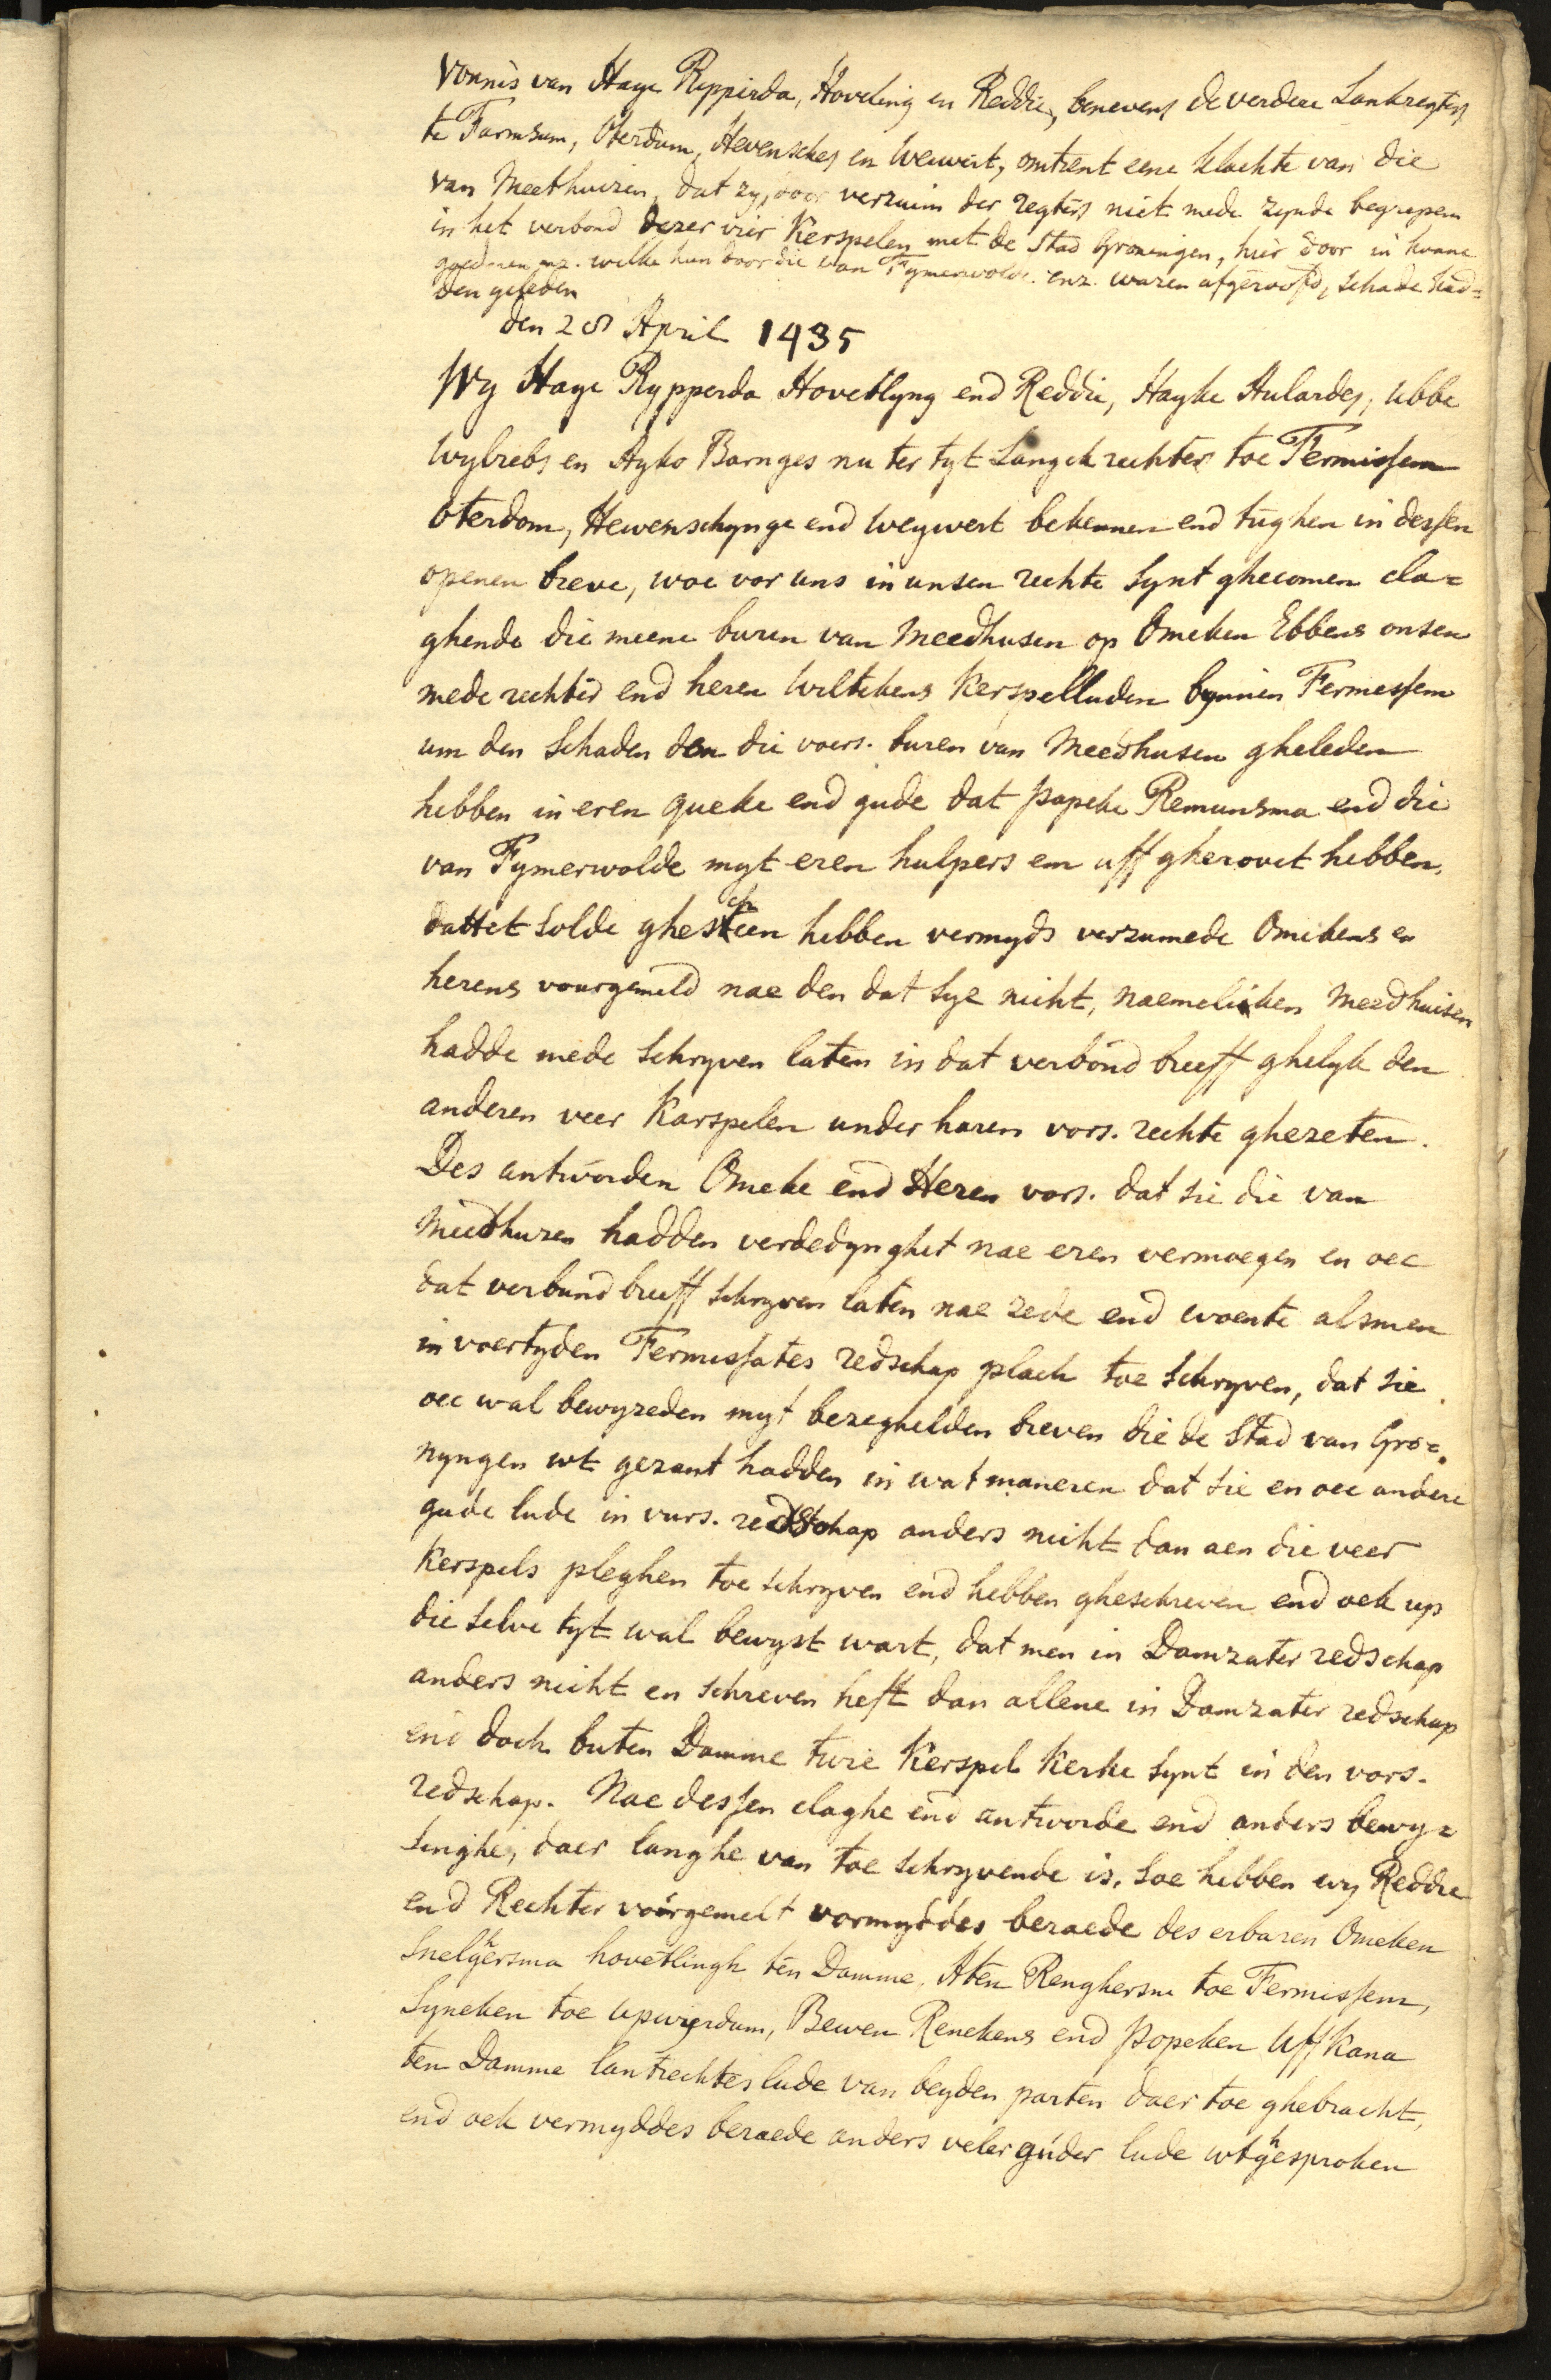 Vonnis van Haye Ripperda, Hoveling en Reddie, benevens de verdere Lankregters
te Farmsum, Oterdum, Hevensches en Weiwert, omtrent eene klachte van die
van Meethuizen, dat zy, door verzuim der regters niet mede zynde begrepen
in het verbond dezer vier Kerspelen met de Stad Groningen, hier door in hunne
goederen enz. welke hun door die van Fymerwolde enz. waren afgeroofd, schade had=
den geleden
den 28 April 1435
Wy Haye Rypperda Hovetlyng end Reddie, Hayke Aulardes, Ubbe
Wybriebs en Ayko Barnges nu ter tyt Langck rechter toe Fermissem
Oterdom, Hewenschynge end Weywert bekennen end tughen in dessen
openen breve, woe vor uns in unsen rechte synt ghecomen cla=
ghende die meene buren van Meedhusen op Omeken Ebbens onsen
mede rechter end heren Wiltekens Kerspelluden bynnen Fermessem
um den schaden den die voers. buren van Meedhusen gheleden
hebben in eren queke end gude dat Popeke Remunsma end die
van Fymerwolde myt eren hulpers em uff gherovet hebben,
dattet solde gheschien hebben vermyds verzumede Omekens en
herens voorgemeld nae den dat sye nicht, naemeliken Meedhuisen
hadde mede schryven laten in dat verbond breeff ghelyk den
anderen veer Karspelen under haren vors. rechte ghezeten.
Des antworden Omeke end Heren vors. dat sie die van
Meedhuzen hadden verdedynghet nae eren vermoegen en oec
dat verbund breeff schryven laten nae zede end woente alsmen
in voertyden Fermessates redschap plach toe schryven, dat sie
oec wal bewyzeden myt bezeghelden breven die de Stad van Gro=
nyngen wt gezant hadden in wat maneren dat sie en oec andere
gude lude in vurs. redschap anders nicht dan aen die veer
Kerspels pleghen toe schryven end hebben gheschreven end oek up
die selve tyt wal bewyst wart, dat men in Damzater redschap
anders nicht en schreven heft dan allene in Damzater redschap
end doch buten Damme twie Kerspel Kerke synt in den vors.
redschap. Nae dessen claghe end antworde end anders bewy=
singhe, daer langhe van toe schryvende is, soe hebben wy Reddie
end Rechter voorgemelt vormyddes beraede des erbaren Omeken
Snelghersma hovetlingh ten Damme, Aten Renghersm toe Fermissem,
Syneken toe Upwierdum, Bewen Renekens end Popeken Uffkana
ten Damme lantrechtes lude van beyden parten daer toe ghebracht,
end oek vermyddes beraede anders veler guder lude wtghesproken